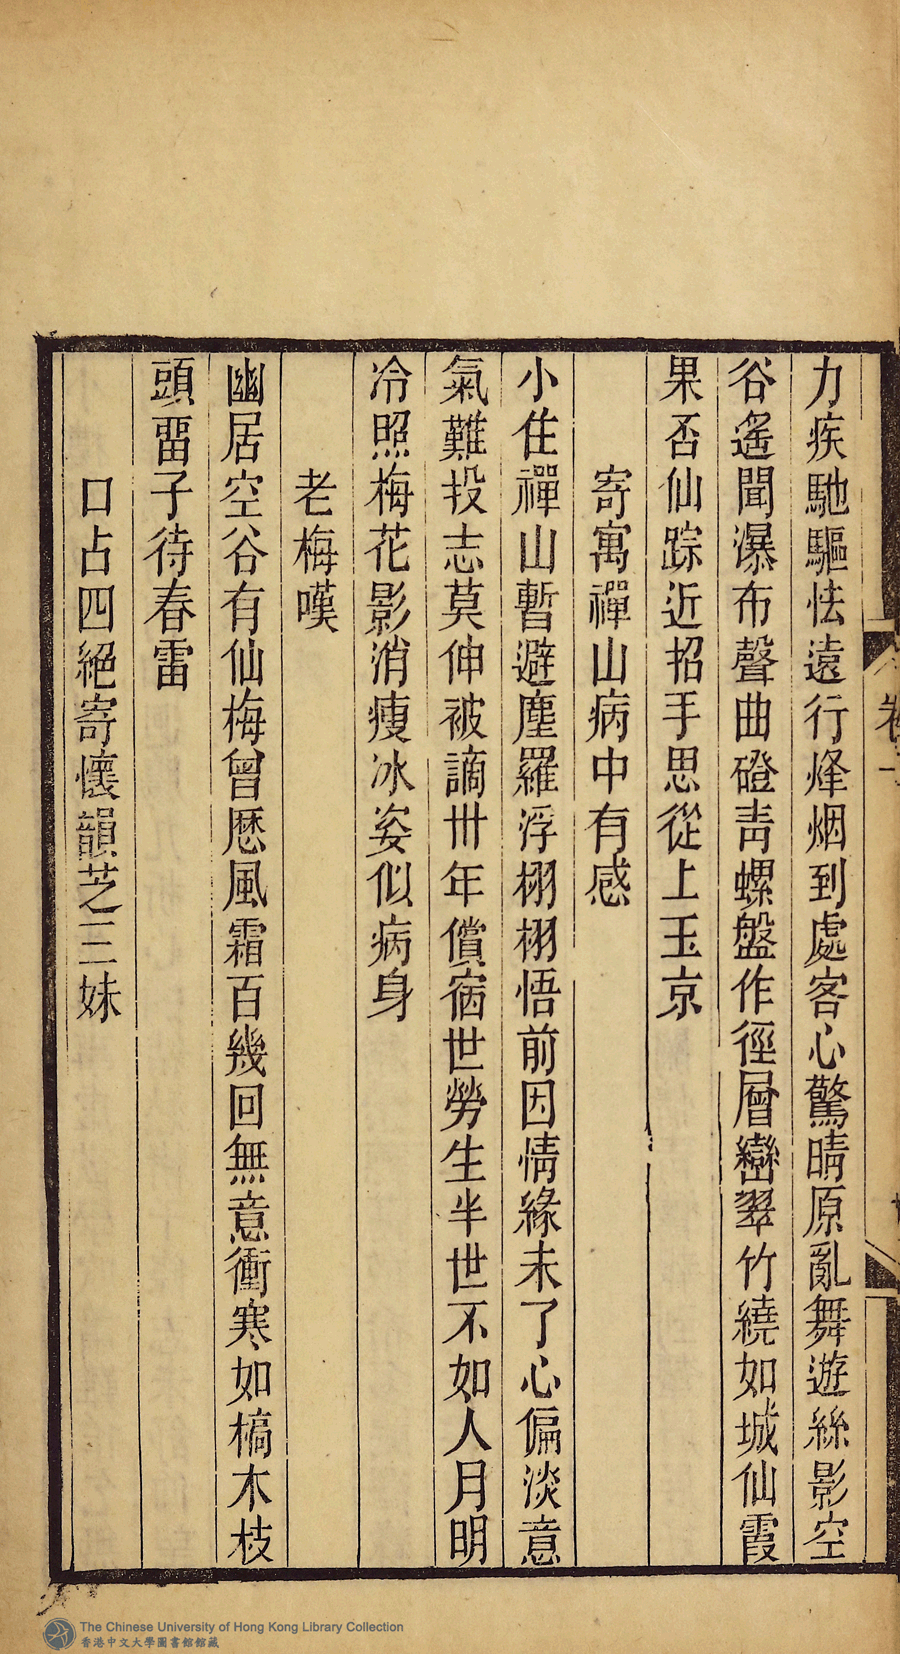 力疾馳驅怯遠行烽烟到處客心驚晴原亂舞遊絲影空
谷遙聞瀑布聲曲磴青螺盤作徑層巒翠竹繞如城仙霞
果否仙踪近招手思從上玉京
寄寓禪山病中有感
小住禪山暫避塵羅浮栩栩悟前因情緣未了心偏淡意
氣難投志莫伸被謫卅年償宿世勞生半世不如人月明
冷照梅花影消瘦冰姿似病身
老梅嘆
幽居空谷有仙梅曾歷風霜百幾回無意衝寒如槁木枝
頭畱子待春雷
口占四絕寄懷韻芝三妹
The Chinese University of Hong Kong Library Collection
香港中文大學圖書館館藏